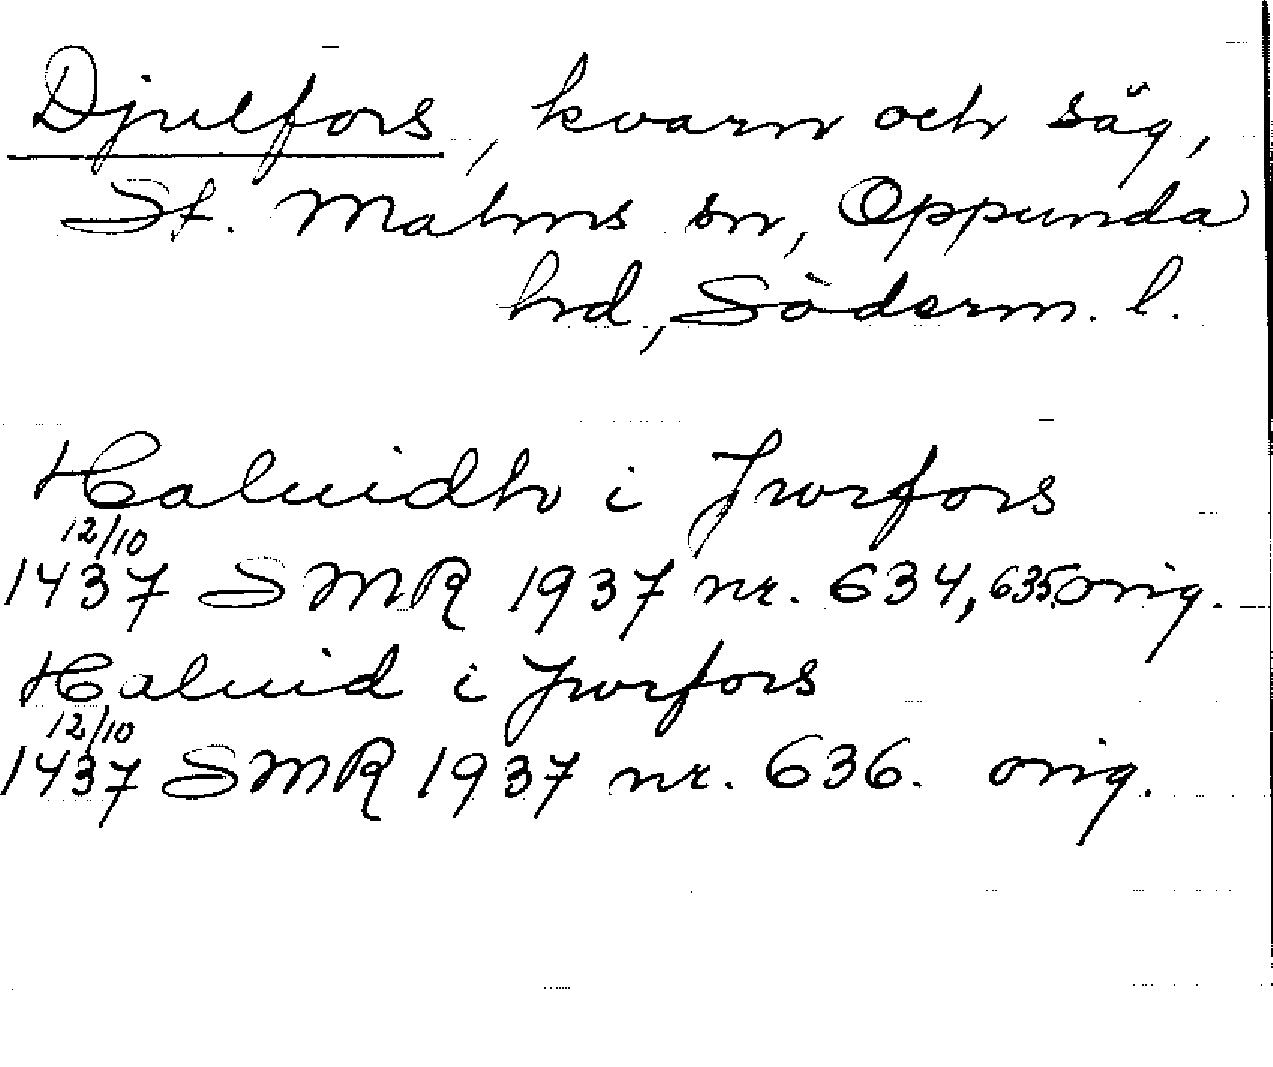 Djulfors, kvarn och såg,
St. Malms sn, Oppunda
hd, Söderm. l.
Haluidh i Jworfors
12/10
1437 SMR 1937 nr. 634, 635. orig.
Haluid i Jworfors
12/10
1437 SMR 1937 nr. 636. orig.